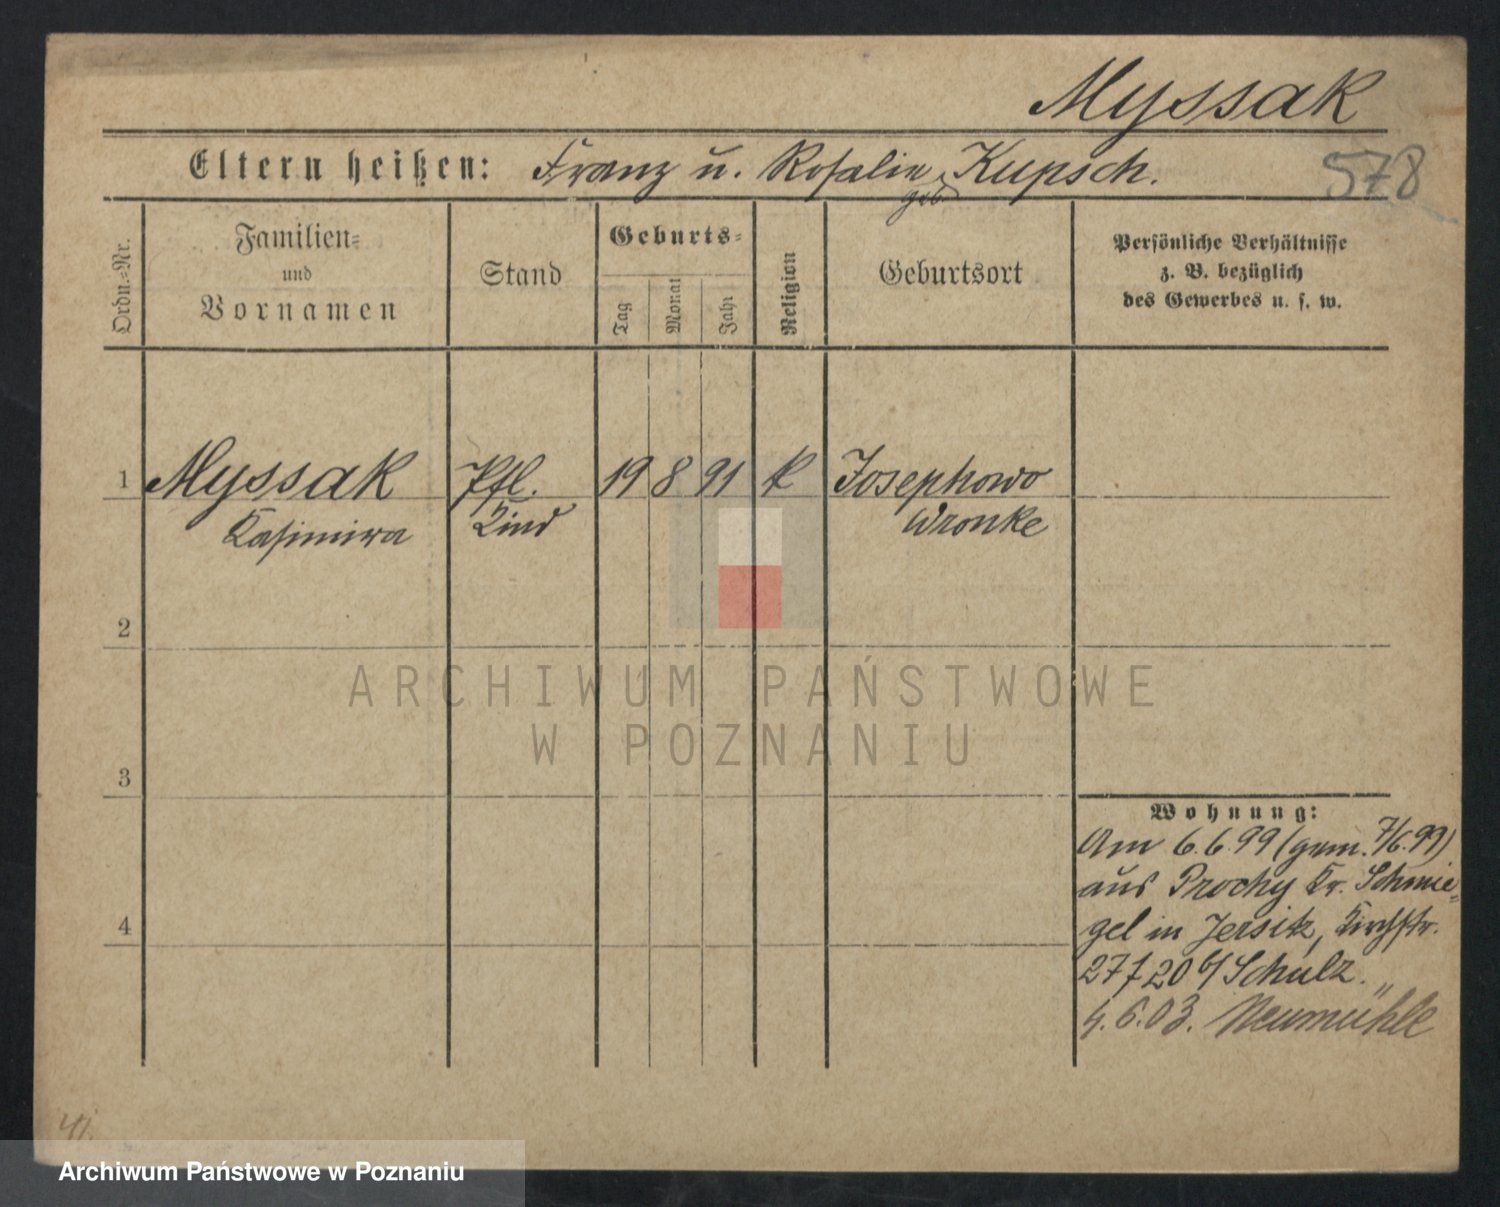 Myssak
Eltern heißen: Franz u. Rosalie geb Kupsch.
578
Ordn.=Nr.
Familien=
und
Vornamen
Stand
Geburts=
Tag
Monat
Jahr
Religion
Geburtsort
Persönliche Verhältnisse
z. B. bezüglich
des Gewerbes u. s. w.
1 Myssak Pfl. 19 8 91 k Josephowo
Kasimira Kind Wronke
2
ARCHIWUM PAŃSTWOWE
W POZNANIU
3
Wohnung:
Am 6.6.99 (gem. 7/6.99)
aus Prochy Kr. Schmie=
4
gel in Jersitz, Kirchstr.
27 f 20 b/ Schulz.
4.6.03. Neumühle
41.
Archiwum Państwowe w Poznaniu